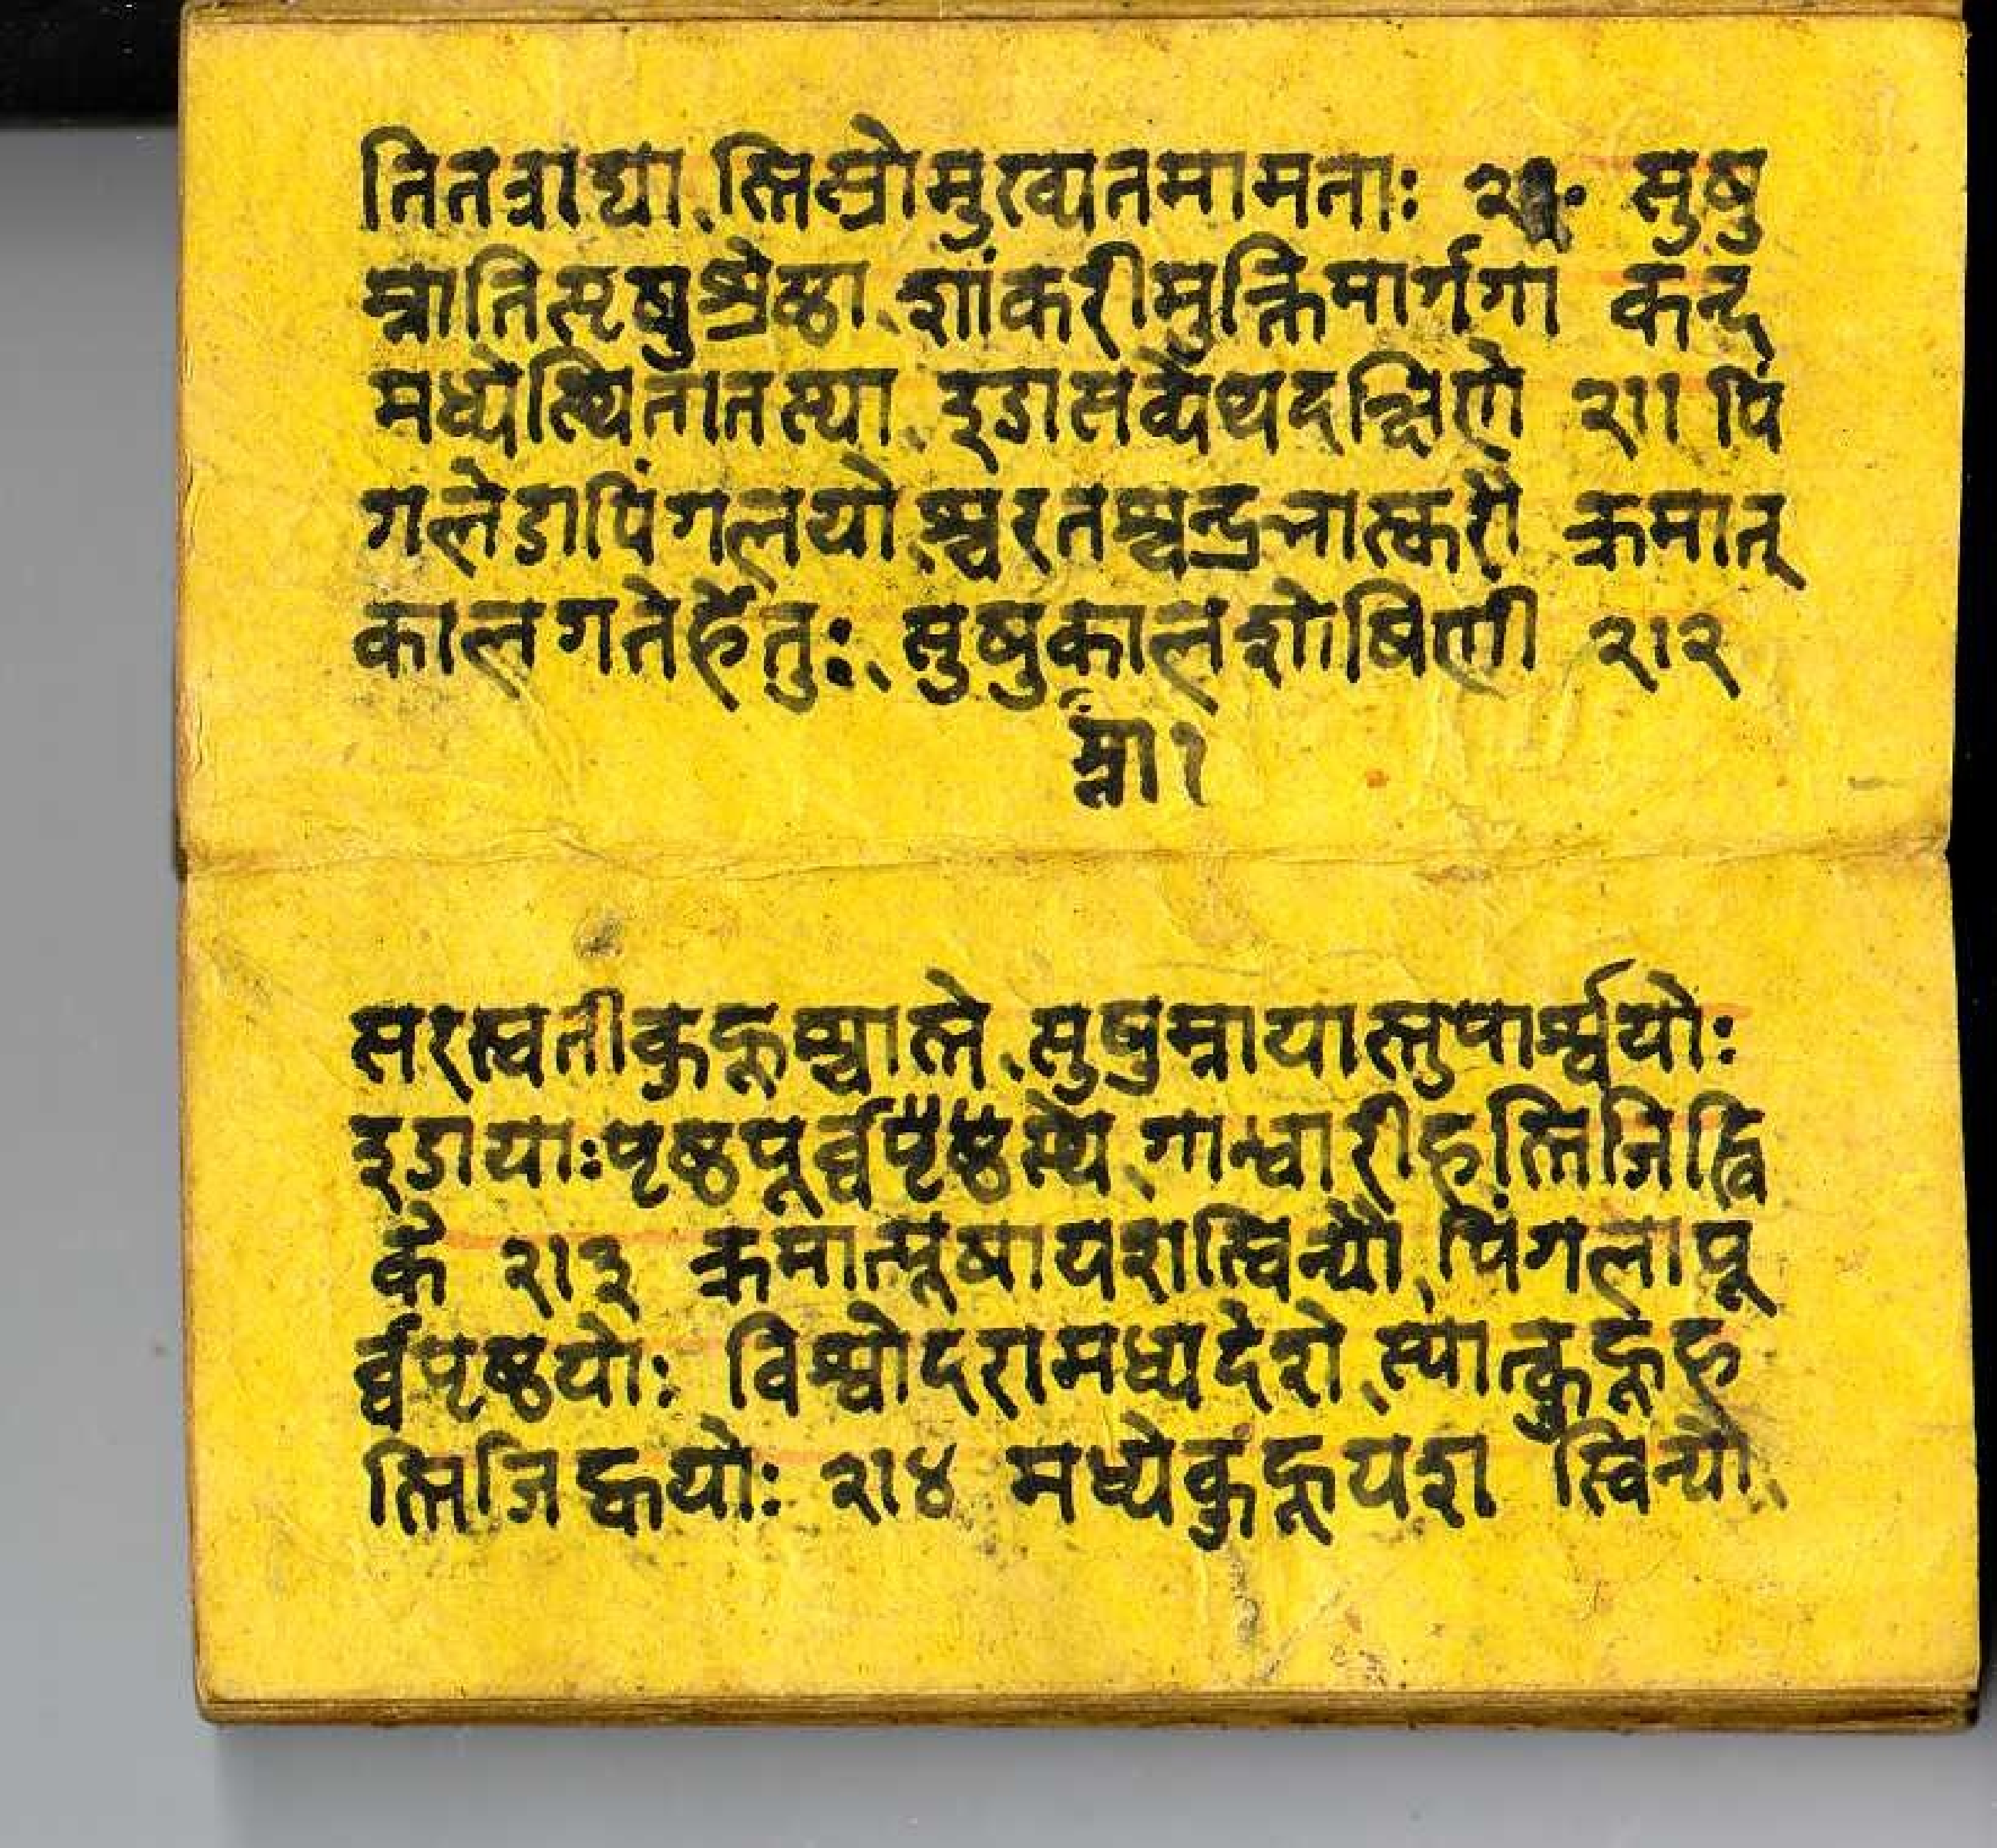 तितत्राद्या स्तिस्रोमुख्यतमामताः २१० सुषु
म्नातिसृषुश्रेष्ठा शांकरीमुक्तिमार्गगा कन्द
मध्येस्थितातस्या इडासव्येथदक्षिणे २११ पिं
गलेडापिंगलयो श्चरतश्चन्द्रभास्करौ क्रमात्
कालगतेर्हेतुः सुषुकालशोषिणी २१२
म्ना।
सरस्वतीकुहूश्चास्ते सुषुम्नायास्तुपार्श्वयोः
इडायाःपृष्ठपूर्व्वपृष्ठस्थे गान्धारीहस्तिजिह्वि
के २१३ क्रमात्पूषायशस्विन्यौ पिंगलापू
र्व्वपृष्ठयोः विश्वोदरामध्यदेशे स्यात्कुहूह
स्तिजिह्वयोः २१४ मध्येकुहूयश स्विन्यौ